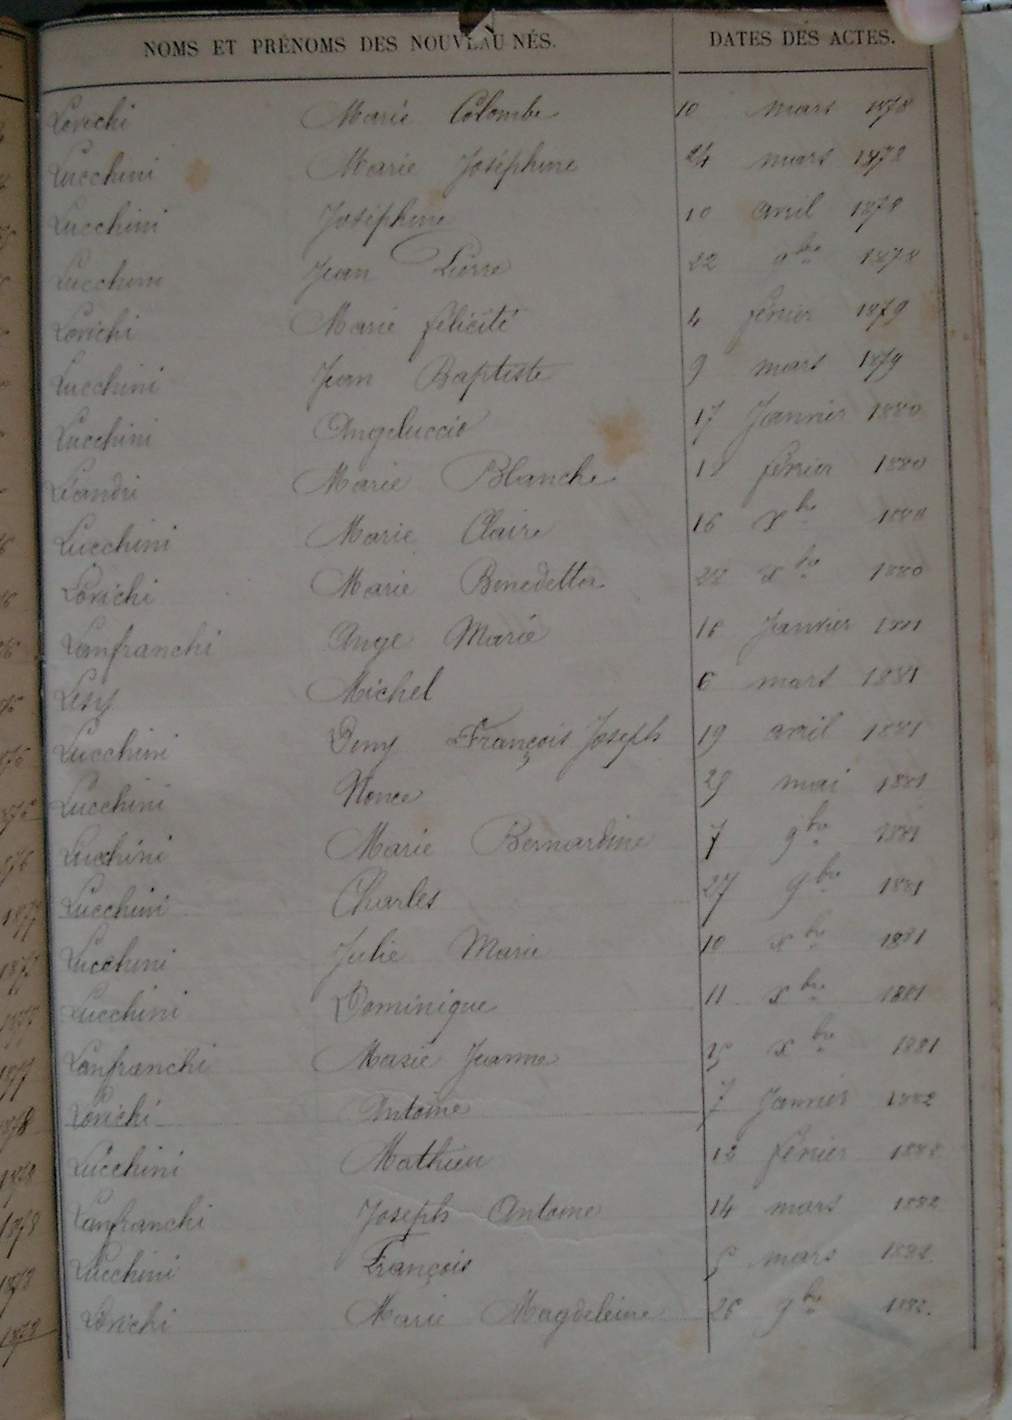 NOMS ET PRÉNOMS DES NOUVEAU NÉS. DATES DES ACTES.
Lovichi Marie Colombe 10 mars 1878
Lucchini Marie Joséphine 24 mars 1878
Lucchini Joséphine 10 avril 1878
Lucchini Jean Pierre 22 9bre 1878
Lovichi Marie félicité 4 février 1879
Lucchini Jean Baptiste 9 mars 1879
Lucchini Angeluccio 17 Janvier 1880
Léandri Marie Blanche février 1880
Lucchini Marie Claire 16 Xbre 1880
Lovichi Marie Benedetta 28 Xbre 1880
Lanfranchi Ange Marie 16 Janvier 1881
Michel 6 mars 1881
Lucchini Dony François Joseph 19 avril 1881
Lucchini Nonce 29 mai 1881
Lucchini Marie Bernardine 7 9bre 1881
Lucchini Charles 27 9bre 1881
Lucchini Julie Marie 10 Xbre 1881
Lucchini Dominique 11 Xbre 1881
Lanfranchi Marie Jeanne Xbre 1881
Lovichi Antoine 7 Janvier 1882
Lucchini Mathieu février 1882
Lanfranchi Joseph Antoine 14 mars 1882
Lucchini François mars 1882
Lovichi Marie Magdeleine 26 9bre 1882.